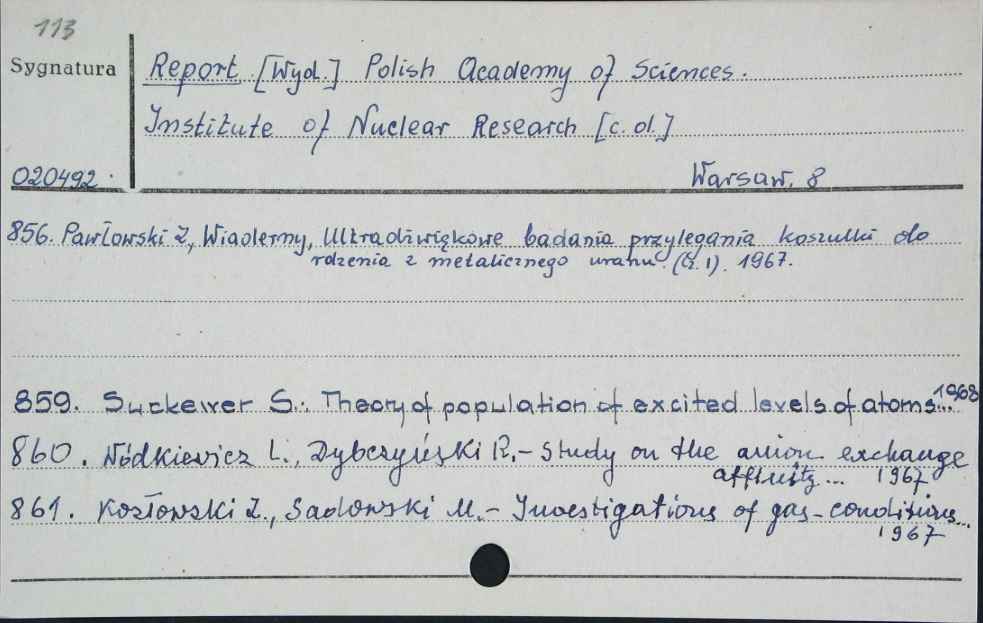 113
Sygnatura
Report [Wyd.] Polish Academy of Sciences.
Institute of Nuclear Research [c.d.]
020492.
Warsaw. 8
856. Pawłowski Z., Wiaderny, Ultradźwiękowe badania przylegania koszulki do
rdzenia z metalicznego uranu. (Cz. 1). 1967.
859. Suckewer S.: Theory of population of excited levels of atoms... 1968
860. Wódkiewicz L., Dybczyński R.- Study on the anion exchange
affinity... 1967
861. Kozłowski Z., Sadowski M.- Investigations of gas-conditions...
1967